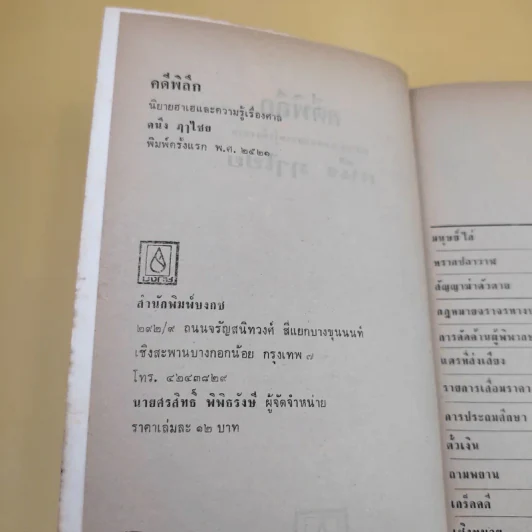 คดีพิลึก
นิยายฮาเฮและความรู้เรื่องศาล
คนึง ฦๅไชย
พิมพ์ครั้งแรก พ.ศ. ๒๕๒๑
บงกช
สำนักพิมพ์บงกช
๒๙๒/๙ ถนนจรัญสนิทวงศ์ สี่แยกบางขุนนนท์
เชิงสะพานบางกอกน้อย กรุงเทพ ๗
โทร. ๔๒๔๓๘๒๙
นายศรสิทธิ์ พิพิธรังษี ผู้จัดจำหน่าย
ราคาเล่มละ ๑๒ บาท
มนุษย์ไล่
พรายปลาวาฬ
สัญญาฆ่าตัวตาย
กฎหมายจราจรทาง
การคัดค้านผู้พิพากษ
แตรที่ส่งเสียง
รายการเสื่อมราคา
การประถมศึกษา
ตั๋วเงิน
ถามพยาน
เสร็จคดี